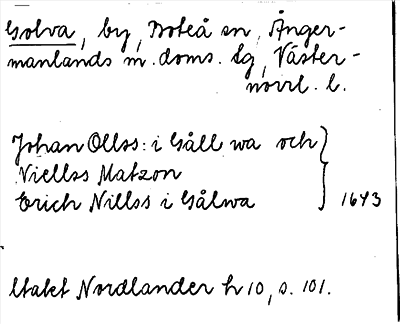 Golva, by, Boteå sn, Ånger-
manlands m. doms. sg, Väster-
norrl. l.
Johan Ollss: i Gåll wa och
Niellss Matzon
Erich Nillss i Gålwa
1643
Utakt Nordlander h 10, s. 101.